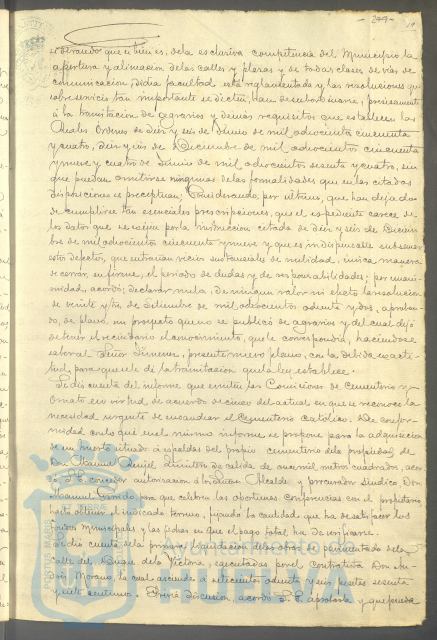 - 277 -
19
siderando que si bien es, de la esclusiva competencia del Municipio la
apertura y alineacion de las calles y plazas y de todas clases de vias de
comunicacion, dicha facultad está reglamentada y las resoluciones que
sobre servicio tan importante se dicten, han de subordinarse, precisamente
á la tramitacion de agrarios y demas requisitos que establecen las
Reales Ordenes de diez y seis de Junio de mil ochocientos cincuenta
y cuatro, diez y seis de Diciembre de mil ochocientos cincuenta
y nueve y cuatro de Junio de mil ochocientos sesenta y cuatro, sin
que puedan omitirse ningunas de las formalidades que en las citadas
disposiciones se preceptuan; Considerando, por ultimo, que han dejado
de cumplirse tan esenciales prescripciones, que el espediente carece de
los datos que se exijen por la instruccion citada de diez y seis de Diciem-
bre de mil ochocientos cincuenta y nueve y que es indispensable subsanar
estos defectos, que entrañan vicios sustanciales de nulidad, unica manera
de cerrar, en firme, el periodo de dudas y de responsabilidades; por unani-
midad, acordó; declarar nula, de ningun valor ni efecto la resolucion
de veinte y tres de Setiembre de mil ochocientos ochenta y dos, aproban-
do, de plano, un proyecto que no se publicó de agrarios y del cual dejó
de tener el vecindario el conocimiento, que le correspondia, haciendose
saber al Señor Gimenez, presente nuevo plano, con la debida exacti-
tud, para que se le dé la tramitacion que la ley establece.
Se dió cuenta del informe que emiten las Comisiones de Cementerio y
Ornato en virtud de acuerdo de cinco del actual en que se reconoce la
necesidad urgente de ensanchar el Cementerio Católico. De confor-
midad con lo que en el mismo informe se propone para la adquisicion
de un huerto situado á espaldas del propio cementerio de la propiedad de
Don Manuel de cabida de once mil metros cuadrados, acor-
dó S.E. conceder autorizacion al Señor Alcalde y procurador Sindico Don
Manuel Garrido para que celebren las oportunas conferencias con el propietario
hasta obtener el indicado terreno, fijando la cantidad que ha de satisfacer los
fondos municipales y las fechas en que el pago total ha de verificarse.
Se dió cuenta de la primera liquidacion de las obras de pavimentado de la
calle del Duque de la Victoria, ejecutadas por el Contratista Don An-
Moreno, la cual asciende á setecientos ochenta y seis pesetas sesenta
y siete centimos. Previa discusion, acordó S.E. aprobarla y que pueda
Ayuntamiento de
HUELVA